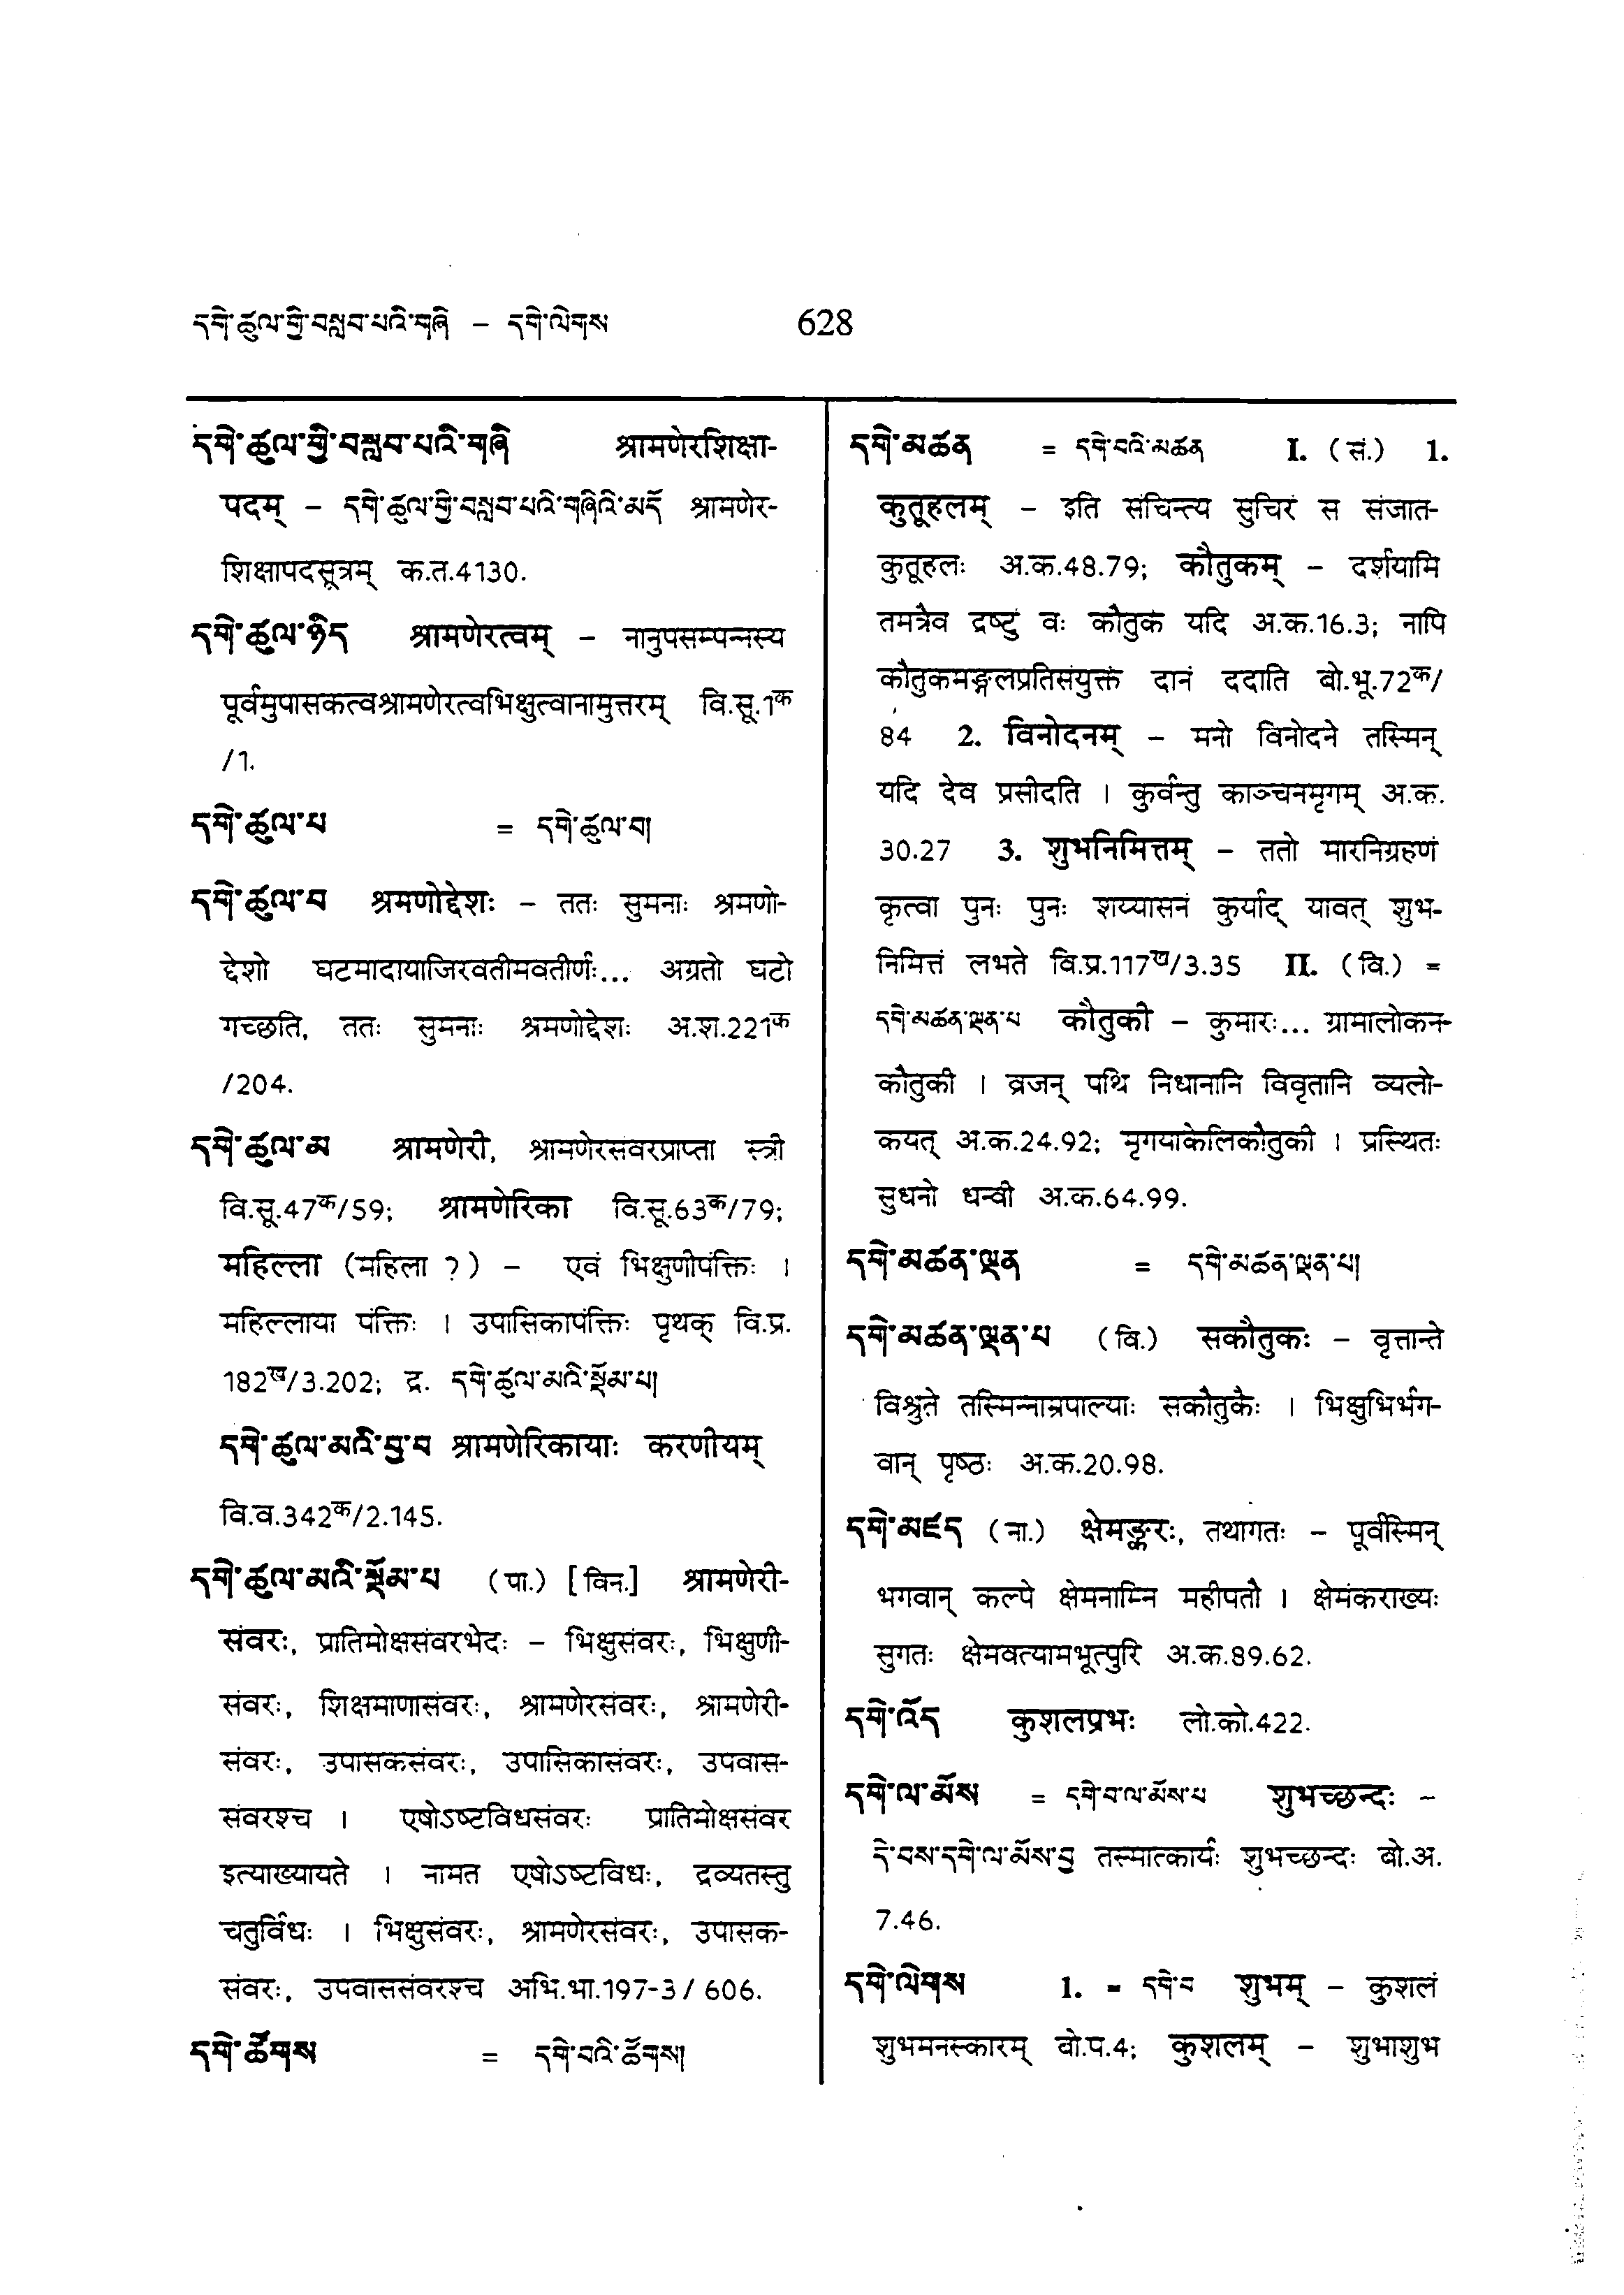 དགེ་ཚུལ་གྱི་བསླབ་པའི་གཞི – དགེ་ལེགས 628
དགེ་ཚུལ་གྱི་བསླབ་པའི་གཞི श्रामणेरशिक्षा-
पदम् – དགེ་ཚུལ་གྱི་བསླབ་པའི་གཞིའི་མདོ श्रामणेर-
शिक्षापदसूत्रम् क.त.4130.
དགེ་ཚུལ་ཉིད श्रामणेरत्वम् – नानुपसम्पन्नस्य
पूर्वमुपासकत्वश्रामणेरत्वभिक्षुत्वानामुत्तरम् वि.सू.1क
/1.
དགེ་ཚུལ་པ = དགེ་ཚུལ་བ།
དགེ་ཚུལ་བ श्रमणोद्देशः – ततः सुमनाः श्रमणो-
द्देशो घटमादायाजिरवतीमवतीर्णः... अग्रतो घटो
गच्छति, ततः सुमनाः श्रमणोद्देशः अ.श.221क
/204.
དགེ་ཚུལ་མ श्रामणेरी, श्रामणेरसंवरप्राप्ता स्त्री
वि.सू.47क/59; श्रामणेरिका वि.सू.63क/79;
महिल्ला (महिला ?) – एवं भिक्षुणीपंक्तिः ।
महिल्लाया पंक्तिः । उपासिकापंक्तिः पृथक् वि.प्र.
182ख/3.202; द्र. དགེ་ཚུལ་མའི་སྡོམ་པ།
དགེ་ཚུལ་མའི་བྱ་བ श्रामणेरिकायाः करणीयम्
वि.व.342क/2.145.
དགེ་ཚུལ་མའི་སྡོམ་པ (पा.) [विन.] श्रामणेरी-
संवरः, प्रातिमोक्षसंवरभेदः – भिक्षुसंवरः, भिक्षुणी-
संवरः, शिक्षमाणासंवरः, श्रामणेरसंवरः, श्रामणेरी-
संवरः, उपासकसंवरः, उपासिकासंवरः, उपवास-
संवरश्च । एषोऽष्टविधसंवरः प्रातिमोक्षसंवर
इत्याख्यायते । नामत एषोऽष्टविधः, द्रव्यतस्तु
चतुर्विधः । भिक्षुसंवरः, श्रामणेरसंवरः, उपासक-
संवरः, उपवाससंवरश्च अभि.भा.197-3/ 606.
དགེ་ཚོགས = དགེ་བའི་ཚོགས།
དགེ་མཚན = དགེ་བའི་མཚན I. (सं.) 1.
कुतूहलम् – इति संचिन्त्य सुचिरं स संजात-
कुतूहलः अ.क.48.79; कौतुकम् – दर्शयामि
तमत्रैव द्रष्टुं वः कौतुकं यदि अ.क.16.3; नापि
कौतुकमङ्गलप्रतिसंयुक्तं दानं ददाति बो.भू.72क/
84 2. विनोदनम् – मनो विनोदने तस्मिन्
यदि देव प्रसीदति । कुर्वन्तु काञ्चनमृगम् अ.क.
30.27 3. शुभनिमित्तम् – ततो मारनिग्रहणं
कृत्वा पुनः पुनः शय्यासनं कुर्याद् यावत् शुभ-
निमित्तं लभते वि.प्र.117ख/3.35 II. (वि.) =
དགེ་མཚན་ལྡན་པ कौतुकी – कुमारः... ग्रामालोकन-
कौतुकी । व्रजन् पथि निधानानि विवृतानि व्यलो-
कयत् अ.क.24.92; मृगयाकेलिकौतुकी । प्रस्थितः
सुधनो धन्वी अ.क.64.99.
དགེ་མཚན་ལྡན = དགེ་མཚན་ལྡན་པ།
དགེ་མཚན་ལྡན་པ (वि.) सकौतुकः – वृत्तान्ते
विश्रुते तस्मिन्नाम्रपाल्याः सकौतुकैः । भिक्षुभिर्भग-
वान् पृष्ठः अ.क.20.98.
དགེ་མཛད (ना.) क्षेमङ्करः, तथागतः – पूर्वस्मिन्
भगवान् कल्पे क्षेमनाम्नि महीपतौ । क्षेमंकराख्यः
सुगतः क्षेमवत्यामभूत्पुरि अ.क.89.62.
དགེ་འོད कुशलप्रभः लो.को.422.
དགེ་ལ་མོས = དགེ་བ་ལ་མོས་པ शुभच्छन्दः –
དེ་བས་དགེ་ལ་མོས་བྱ तस्मात्कार्यः शुभच्छन्दः बो.अ.
7.46.
དགེ་ལེགས 1. = དགེ་བ शुभम् – कुशलं
शुभमनस्कारम् बो.प.4; कुशलम् – शुभाशुभ